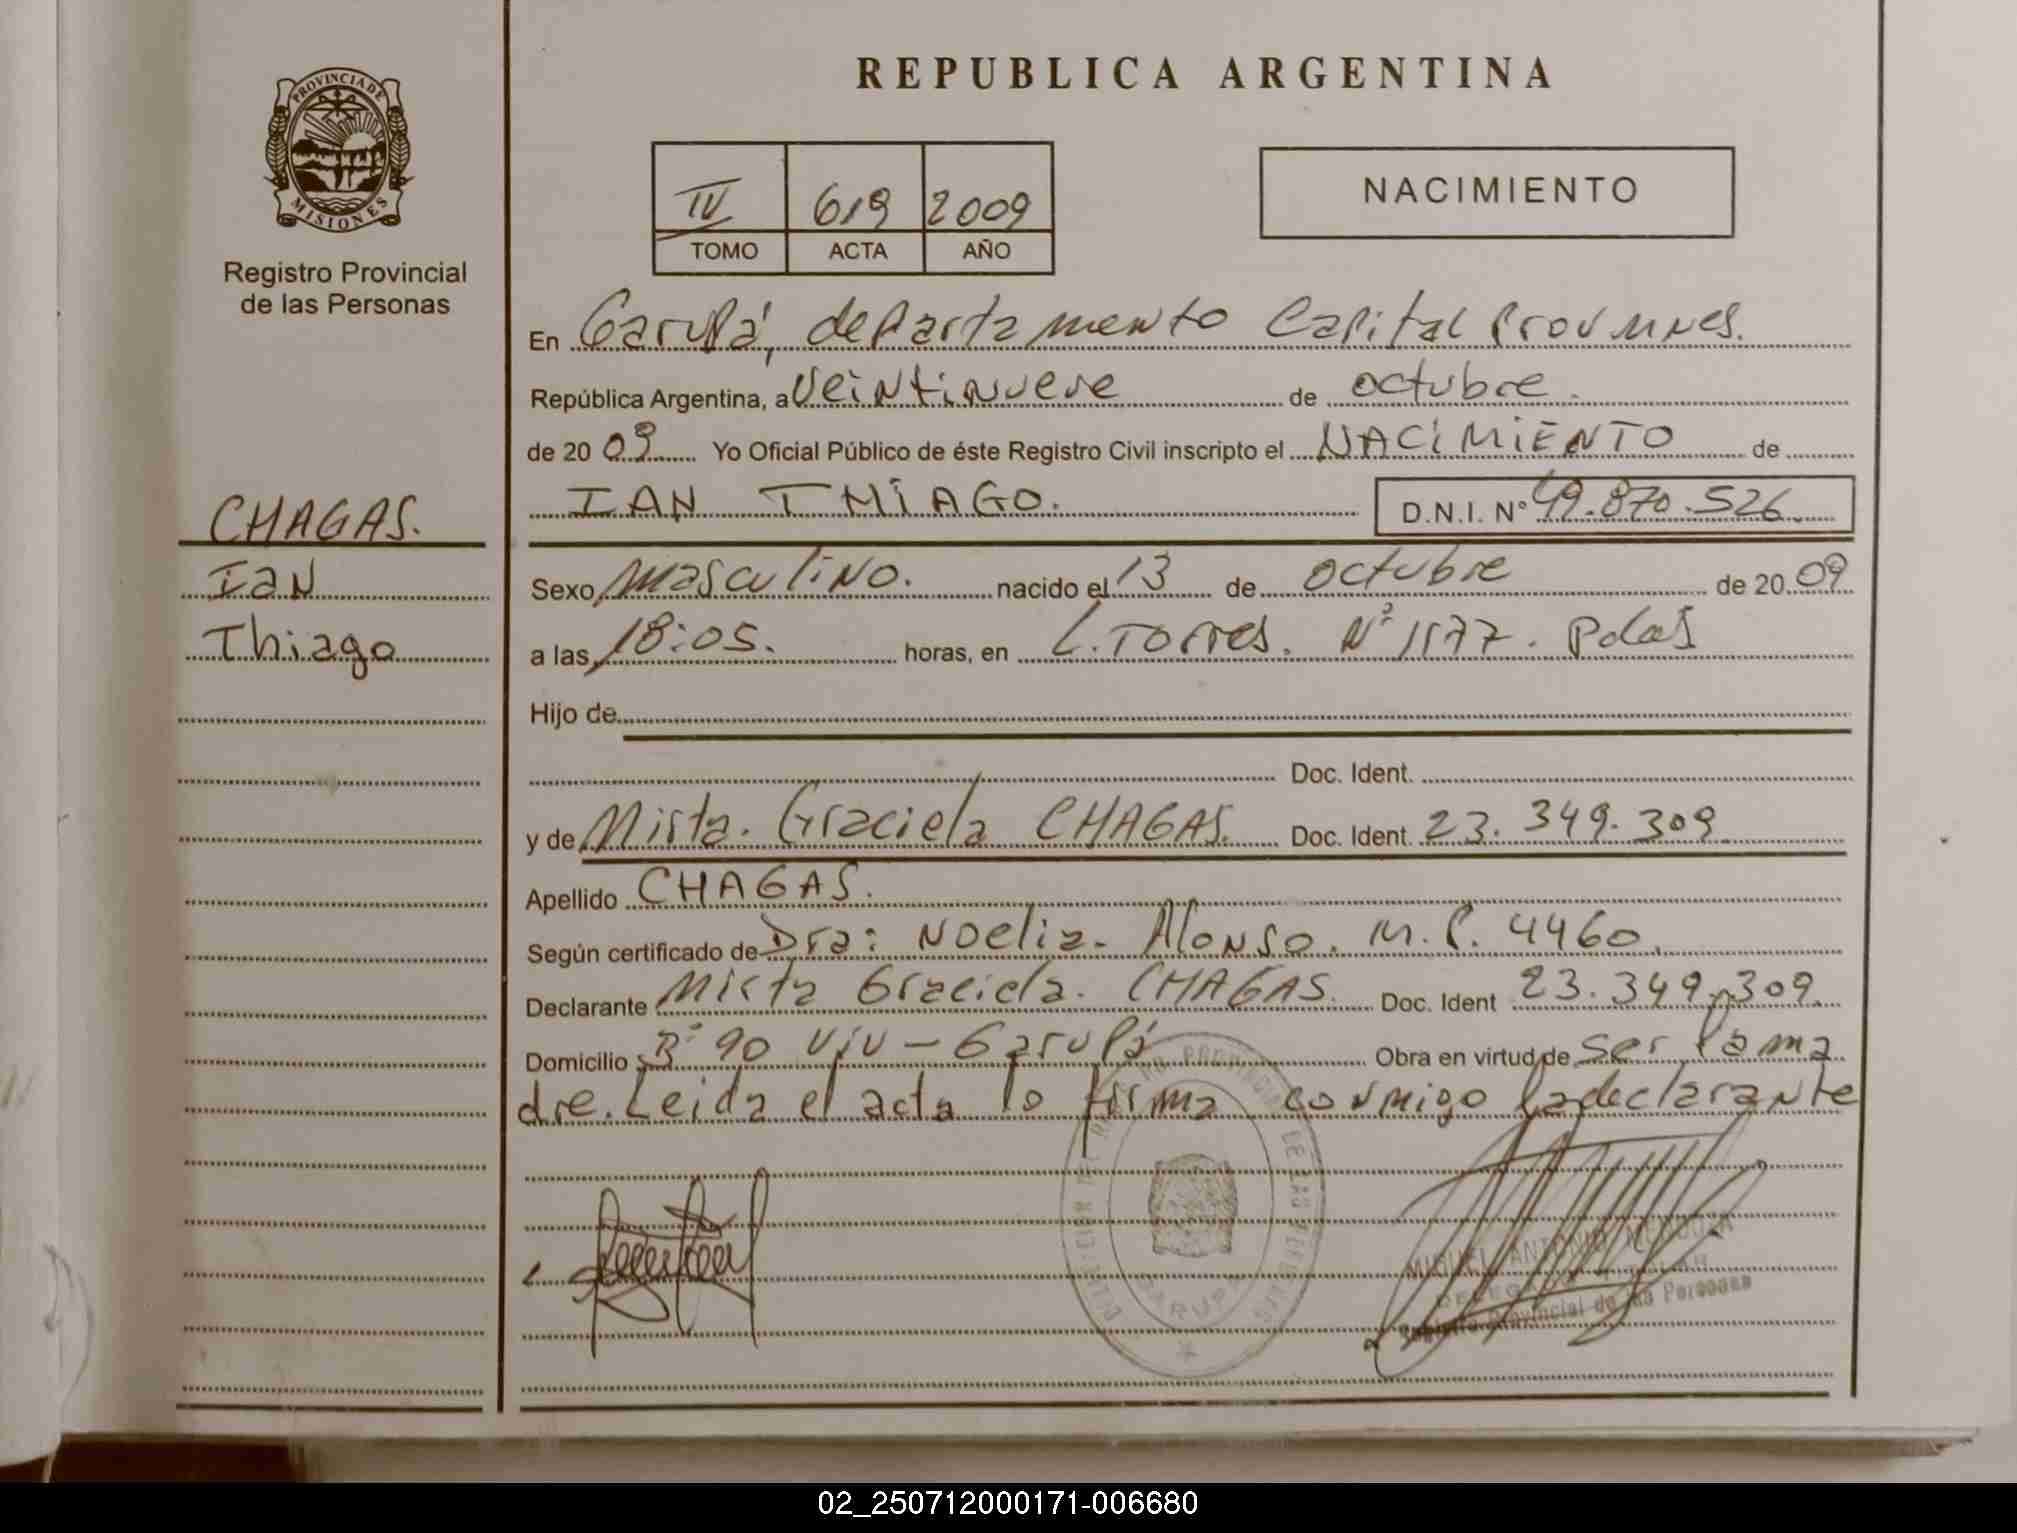 REPUBLICA ARGENTINA
PROVINCIA DE
MISIONES
Registro Provincial
de las Personas
IV 619 2009
TOMO ACTA AÑO
NACIMIENTO
En Garupá, departamento Capital Prov Mnes.
República Argentina, a Veintinueve de octubre.
de 20 09 Yo Oficial Público de éste Registro Civil inscripto el NACIMIENTO de
IAN THIAGO. D.N.I. N° 49.870.526
CHAGAS.
Ian
Thiago
Sexo Masculino. nacido el 13 de octubre de 20 09
a las 18:05. horas, en L. Torres. N° 1177. Pdas
Hijo de
Doc. Ident.
y de Mirta. Graciela CHAGAS. Doc. Ident. 23.349.309
Apellido CHAGAS.
Según certificado de Dra: Noelia. Alonso. M.P. 4460.
Declarante Mirta Graciela. CHAGAS. Doc. Ident 23.349.309
Domicilio B° 90 Viv - Garupá Obra en virtud de ser la ma
dre. Leida el acta lo firma conmigo la declarante
GARUPA
MIGUEL ANTONIO
Provincial de las Personas
02_250712000171-006680